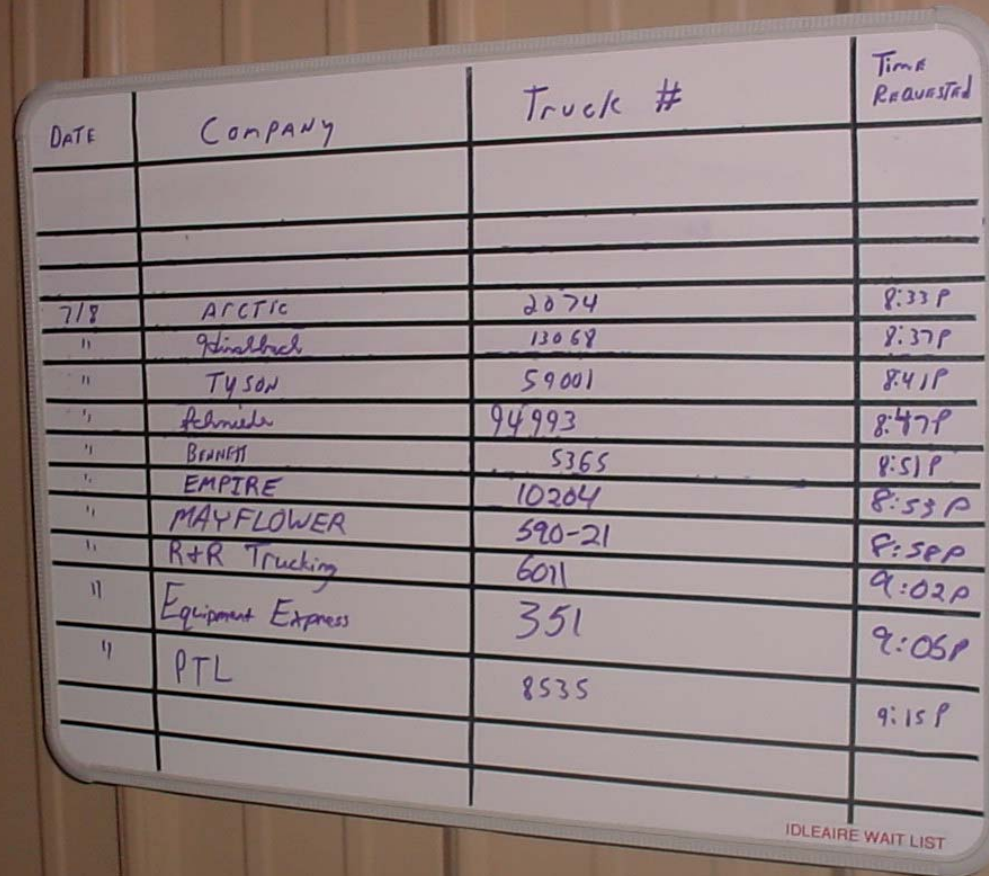 DATE Company Truck # Time Requested
7/8 Arctic 2074 8:33 P
" 13068 8:37P
" TYSON 59001 8:41P
" 94993 8:47P
" BENNETT 5365 8:51P
" EMPIRE 10204 8:53P
" MAYFLOWER 590-21 8:58P
" R+R Trucking 6011 9:02P
" Equipment Express 351 9:05P
" PTL 8535 9:15P
IDLEAIRE WAIT LIST